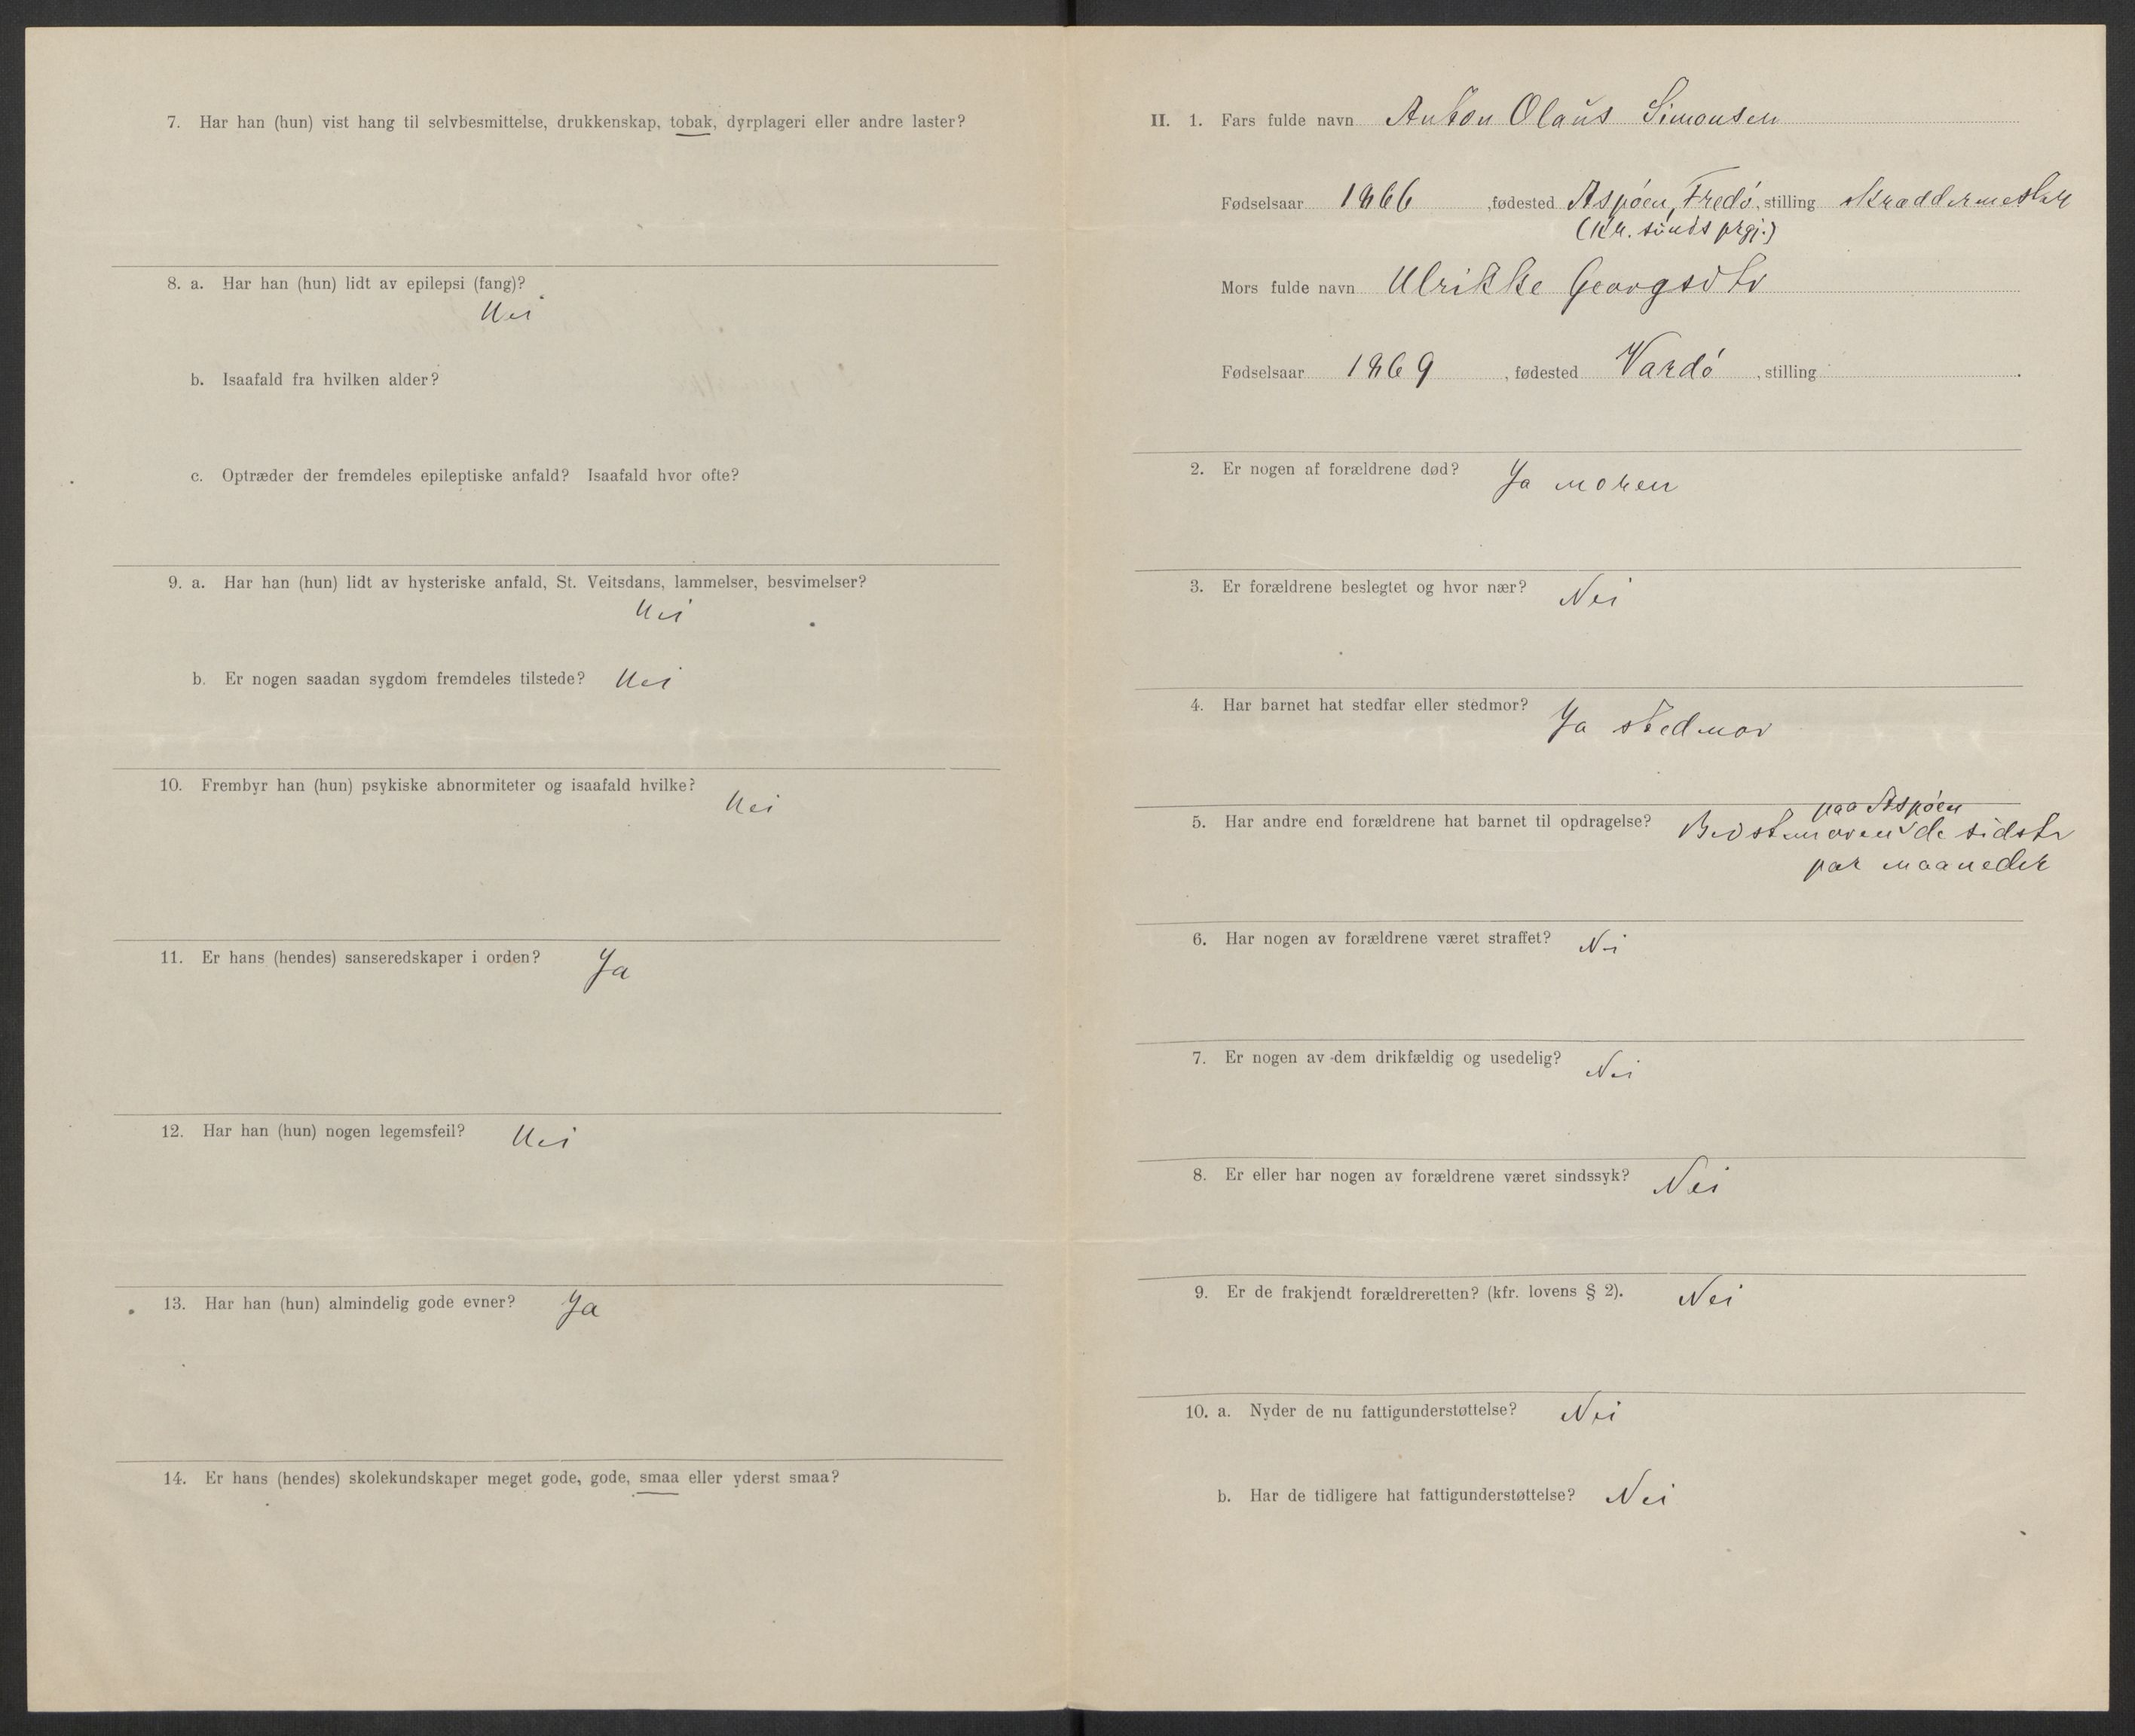 7. Har han (hun) vist hang til selvbesmittelse, drukkenskap, tobak, dyrplageri eller andre laster?
8. a. Har han (hun) lidt av epilepsi (fang)?
Nei
b. Isaafald fra hvilken alder?
c. Optræder der fremdeles epileptiske anfald? Isaafald hvor ofte?
9. a. Har han (hun) lidt av hysteriske anfald, St. Veitsdans, lammelser, besvimelser?
Nei
b. Er nogen saadan sygdom fremdeles tilstede? Nei
10. Frembyr han (hun) psykiske abnormiteter og isaafald hvilke?
Nei
11. Er hans (hendes) sanseredskaper i orden? Ja
12. Har han (hun) nogen legemsfeil? Nei
13. Har han (hun) almindelig gode evner? Ja
14. Er hans (hendes) skolekundskaper meget gode, gode, smaa eller yderst smaa?
II. 1. Fars fulde navn Anton Olaus Simonsen
Fødselsaar 1866, fødested Aspøen, Fredø, stilling Skræddermester
(Kr. sunds prgj.)
Mors fulde navn Ulrikke Georgsdtr
Fødselsaar 1869, fødested Vardø, stilling
2. Er nogen af forældrene død? Ja moren
3. Er forældrene beslegtet og hvor nær? Nei
4. Har barnet hat stedfar eller stedmor? Ja stedmor
paa Aspøen
5. Har andre end forældrene hat barnet til opdragelse? Bedstemoren de sidste
par maaneder
6. Har nogen av forældrene været straffet? Nei
7. Er nogen av dem drikfældig og usedelig? Nei
8. Er eller har nogen av forældrene været sindssyk? Nei
9. Er de frakjendt forældreretten? (kfr. lovens § 2). Nei
10. a. Nyder de nu fattigunderstøttelse? Nei
b. Har de tidligere hat fattigunderstøttelse? Nei